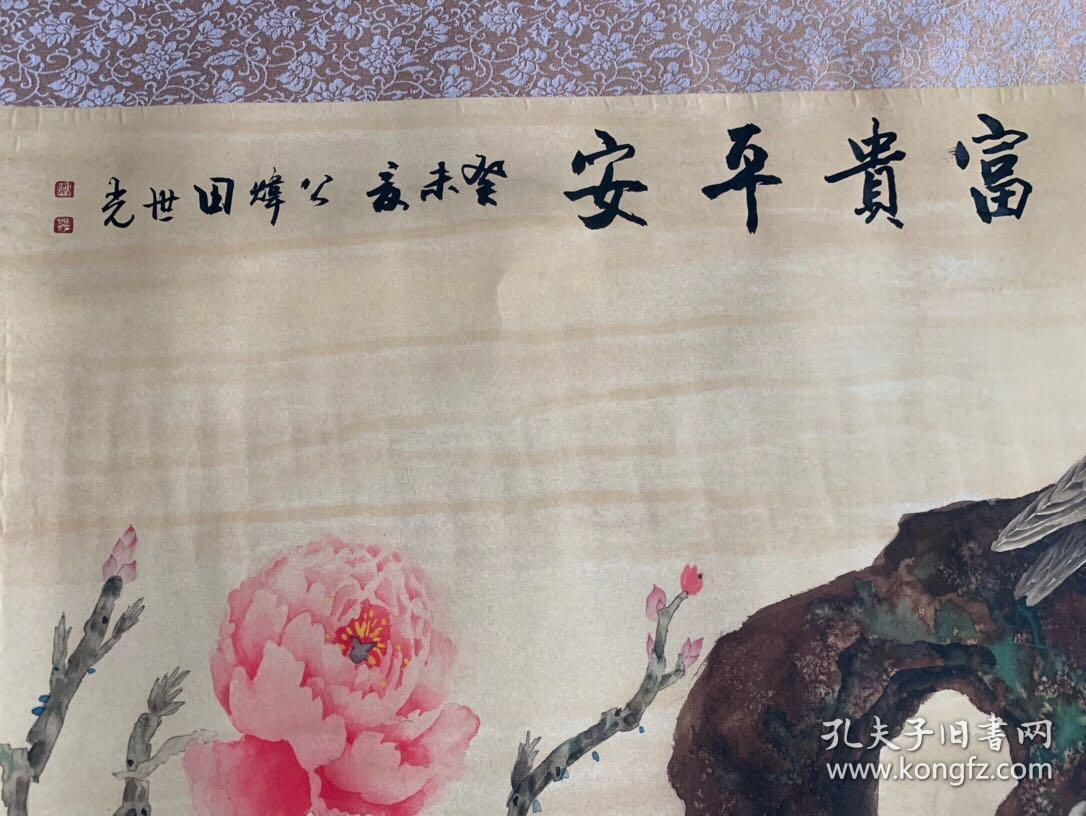 富貴平安
癸未夏公煒田世光
孔夫子旧書网
www.kongfz.com